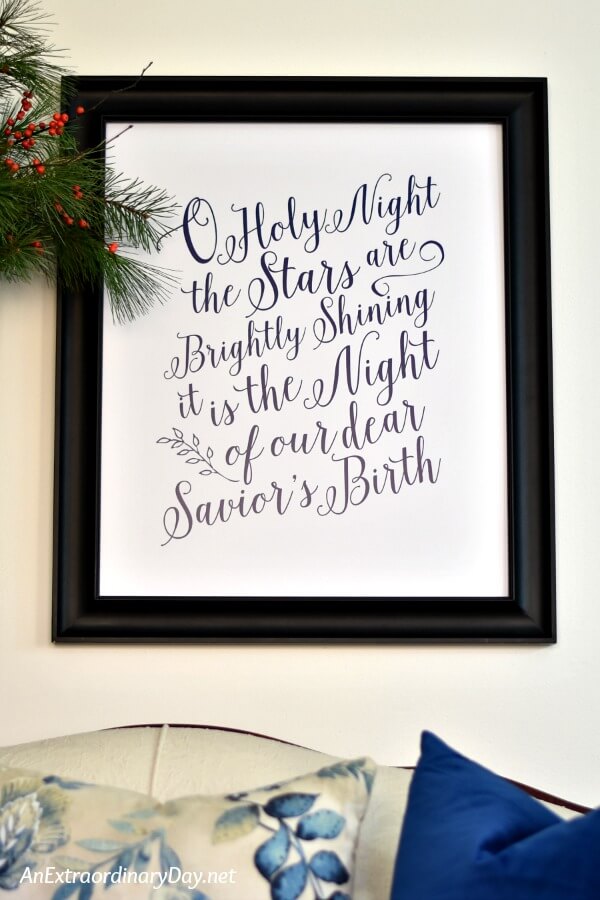 O Holy Night
the Stars are
Brightly Shining
it is the Night
of our dear
Savior's Birth
AnExtraordinaryDay.net